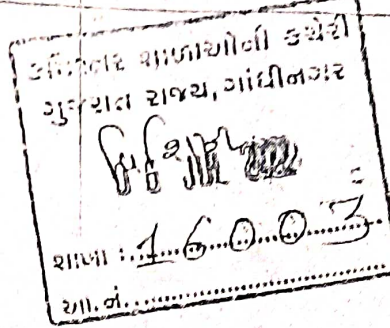 કમિશનર શાળાઓની કચેરી
ગુજરાત રાજ્ય, ગાંધીનગર
શાખા :.16003
આ. નં.